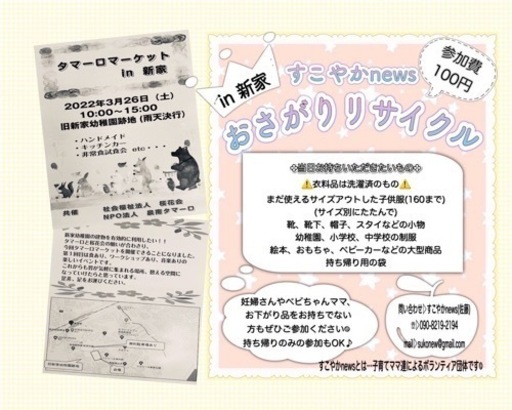 タマーロマーケット
in 新家
2022年3月26日（土）
10:00～15:00
旧新家幼稚園跡地 (雨天決行)
・ハンドメイド
・キッチンカー
・非常食試食会 etc・・・
共催 社会福祉法人 桜花会
NPO法人 泉南タマーロ
in 新家
すこやかnews
おさがりリサイクル
参加費
100円
✧当日お持ちいただきたいもの✧
⚠️衣料品は洗濯済のもの⚠️
まだ使えるサイズアウトした子供服(160まで)
(サイズ別にたたんで)
靴、靴下、帽子、スタイなどの小物
幼稚園、小学校、中学校の制服
絵本、おもちゃ、ベビーカーなどの大型商品
持ち帰り用の袋
妊婦さんやベビちゃんママ、
お下がり品をお持ちでない
方もぜひご参加ください☺
持ち帰りのみの参加もOK♪
問い合わせ＞すこやかnews(佐藤)
☎＞090-8219-2194
mail＞sukonew@gmail.com
すこやかnewsとは…子育てママ達によるボランティア団体です☺